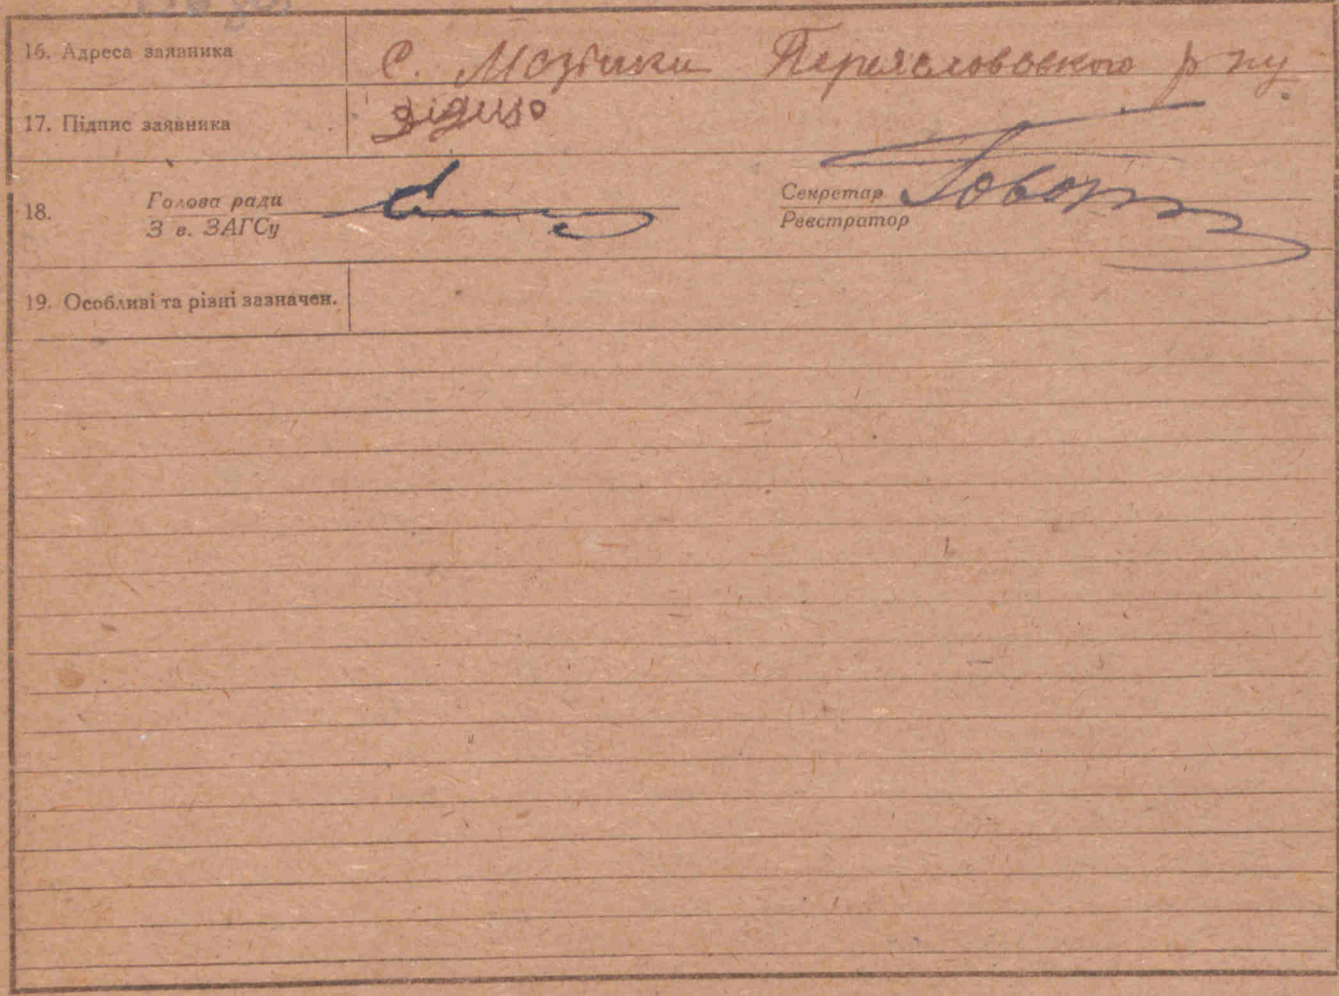 16. Адреса заявника С. Переясловського р-ну
17. Підпис заявника
18. Голова ради Секретар
З в. ЗАГСу Реєстратор
19. Особливі та різні зазначен.